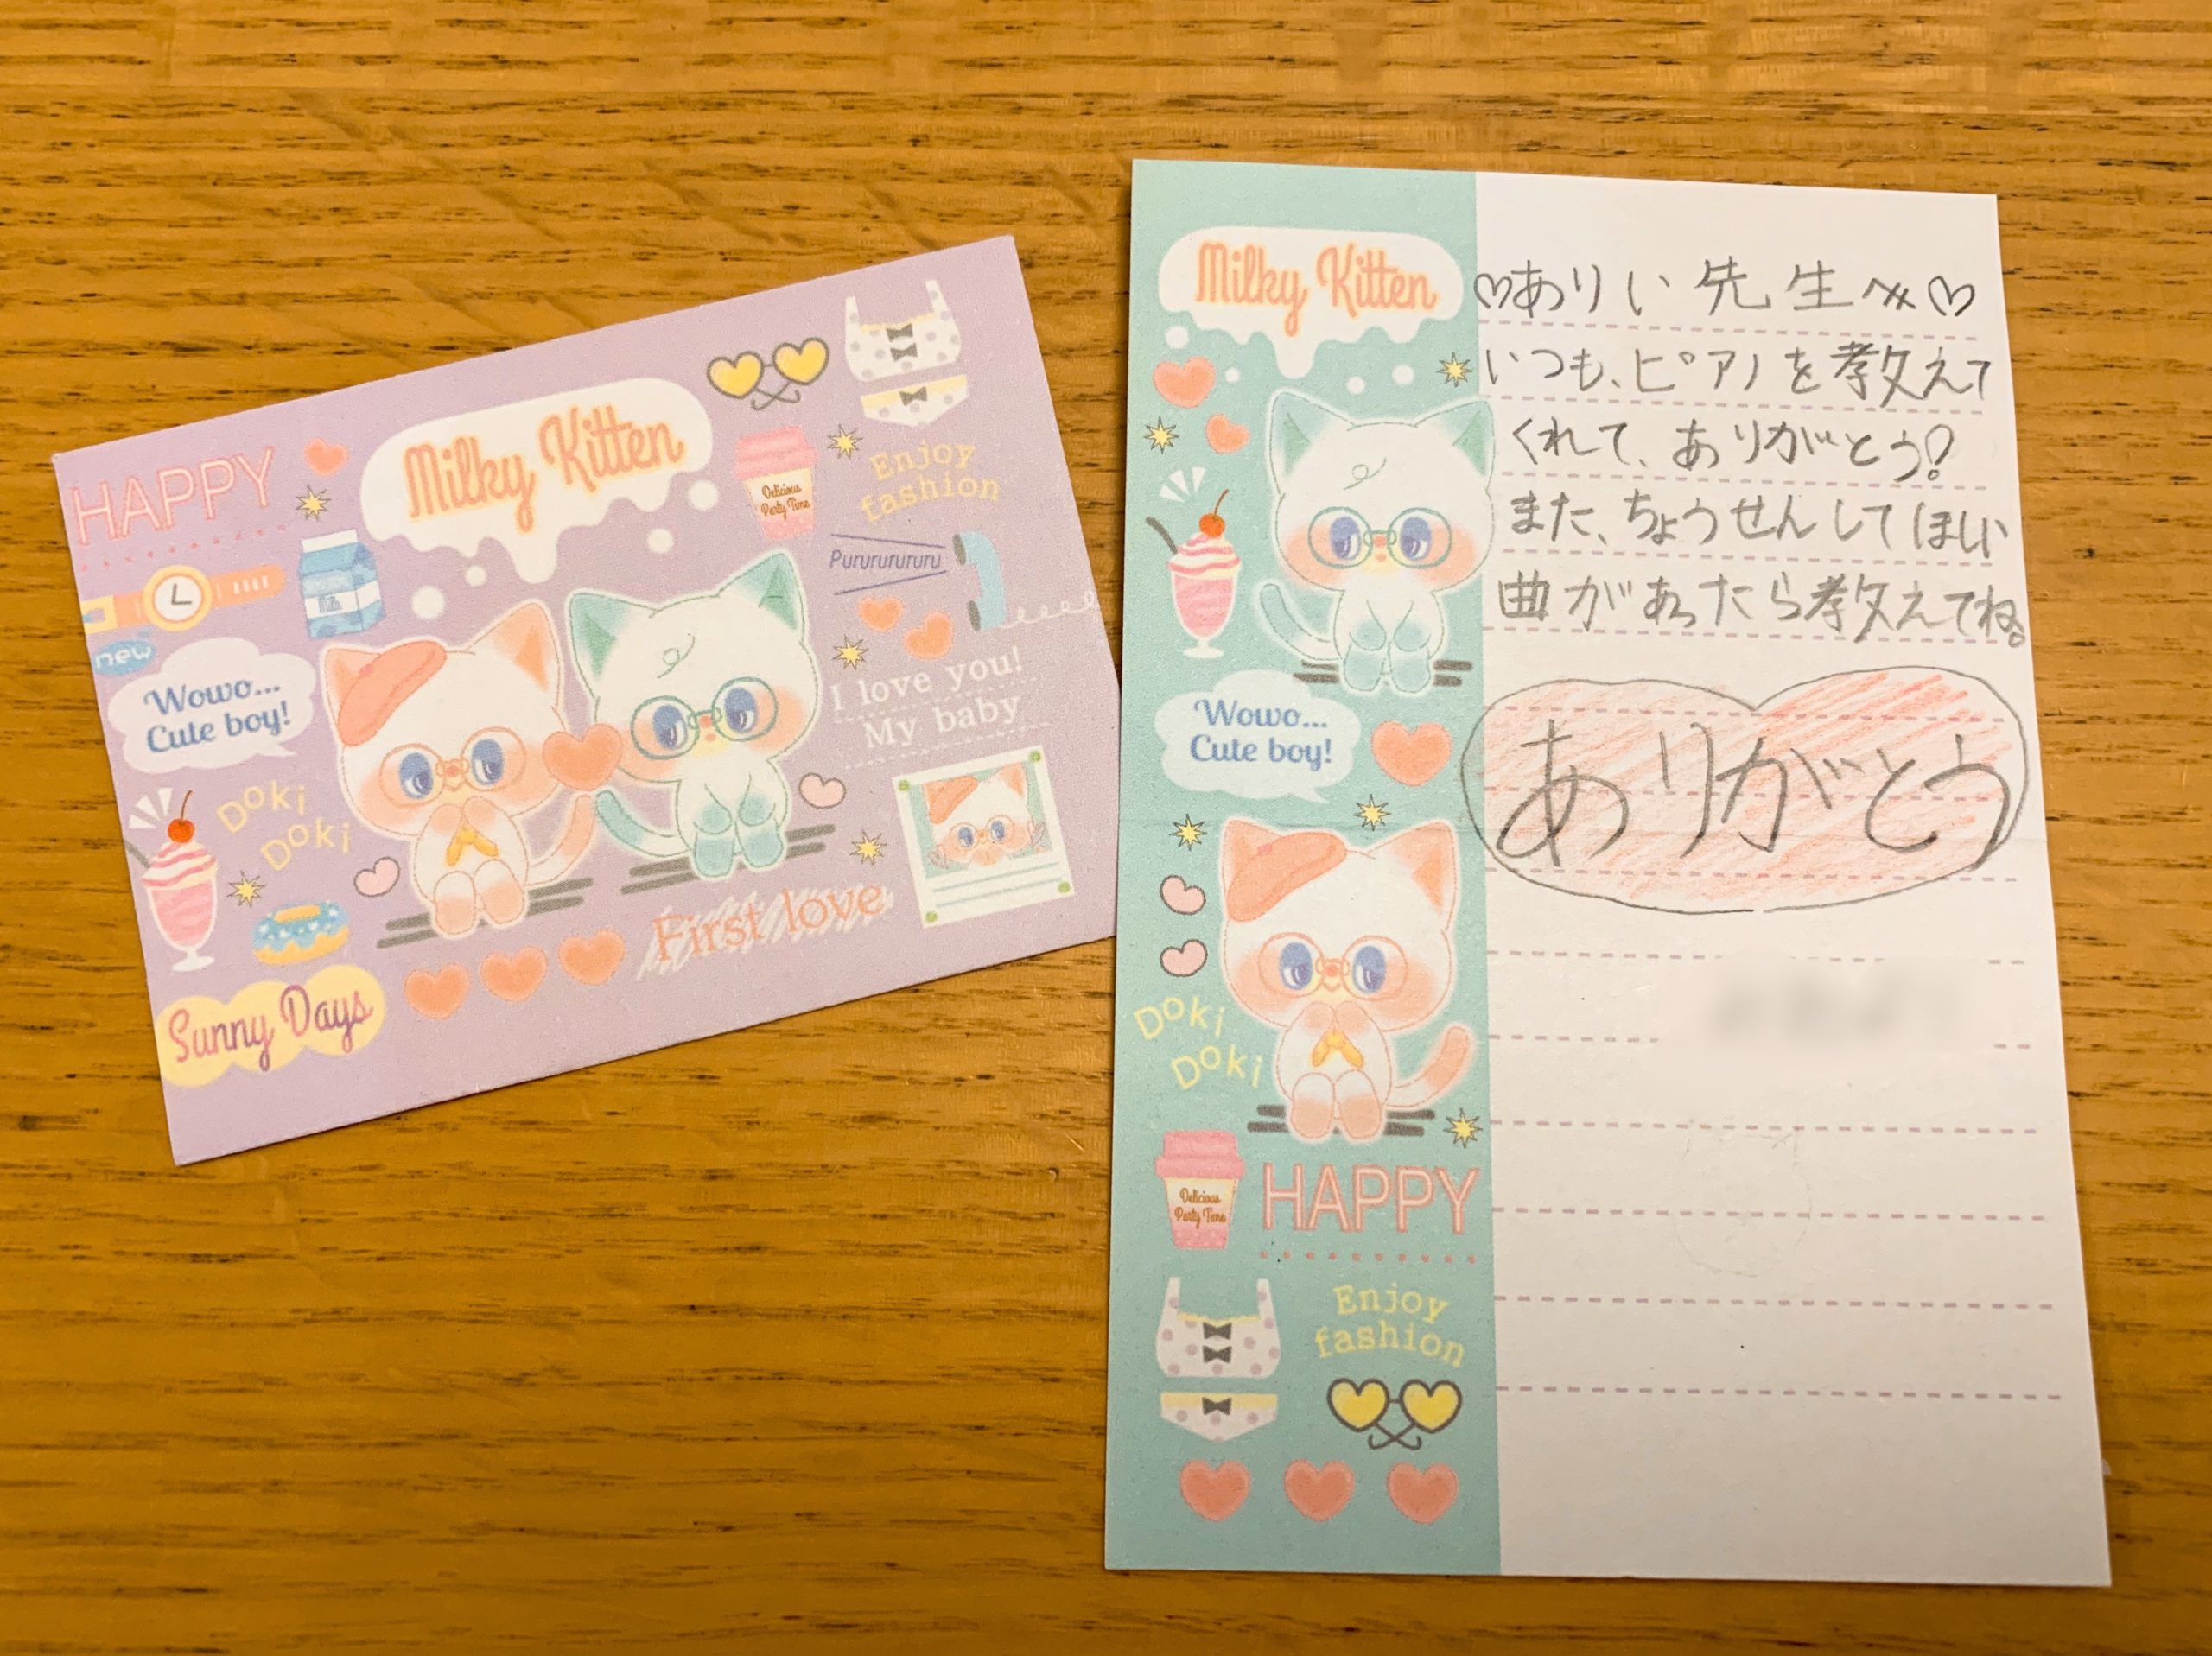 HAPPY
Milky Kitten
Delicious
Party Time
Enjoy
fashion
Purururururu
new
Milk
Wowo...
Cute boy!
I love you!
My baby
Doki
Doki
First love
Sunny Days
Milky Kitten
♡ありい先生へ♡
いつも、ピアノを教えて
くれて、ありがとう!
また、ちょうせんしてほしい
曲があったら教えてね。
ありがとう
Wowo...
Cute boy!
Doki
Doki
Delicious
Party Time
HAPPY
Enjoy
fashion